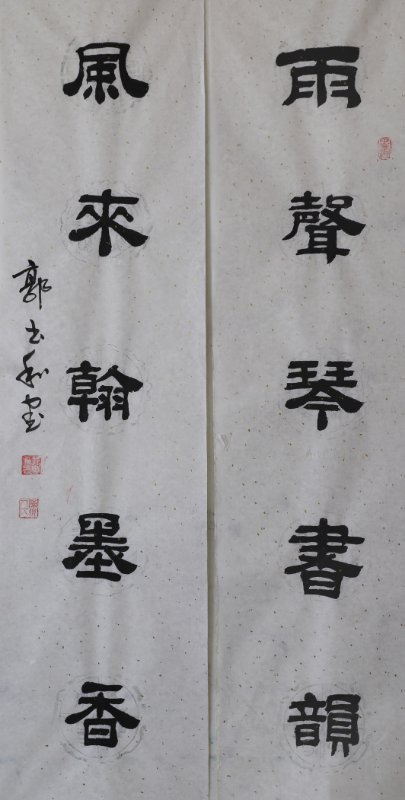 雨聲琴書韻
風來翰墨香
郭士和書